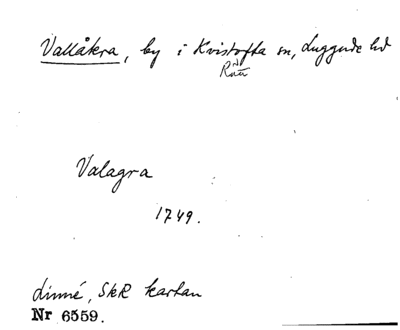 Vallåkra, by i Kvistofta sn, Luggude hd
Raus
Valagra
1749.
Linné, SkR kartan
Nr 6559.